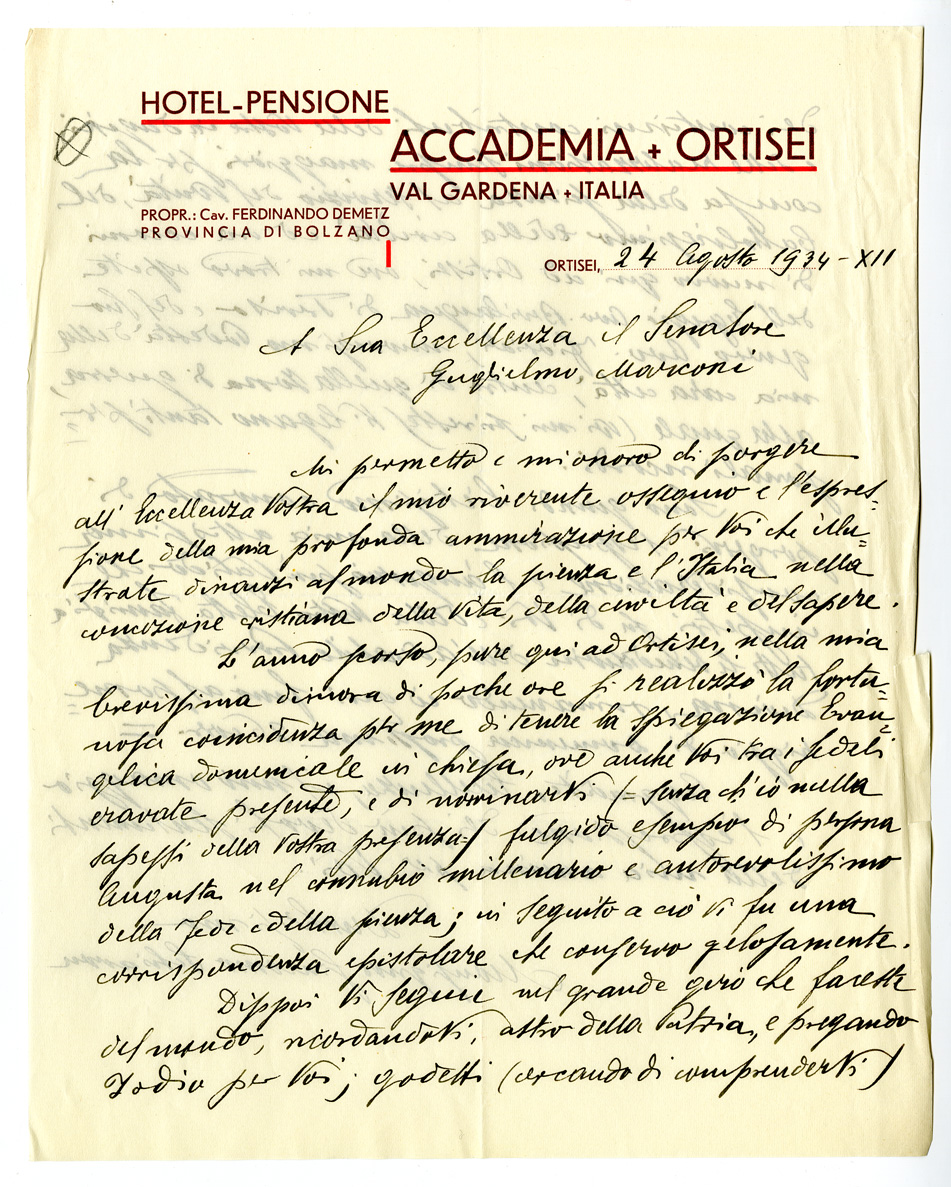 HOTEL-PENSIONE
ACCADEMIA + ORTISEI
VAL GARDENA + ITALIA
PROPR.: Cav. FERDINANDO DEMETZ
PROVINCIA DI BOLZANO
ORTISEI, 24 Agosto 1934 - XII
A Sua Eccellenza il Senatore
Guglielmo Marconi
Mi permetto e mi onoro di porgere
all' Eccellenza Vostra il mio riverente ossequio e l'espres-
sione della mia profonda ammirazione per Voi che illu=
strate dinanzi al mondo la scienza e l'Italia nella
concezione cristiana della Vita, della civiltà e del sapere.
L'anno scorso, pure qui ad Ortisei, nella mia
brevissima dimora di poche ore si realizzò la fortu=
nosa coincidenza per me di tenere la spiegazione Evan=
gelica domenicale in chiesa, ove anche Voi tra i fedeli
eravate presente, e di nominarVi (= senza ch'io nulla
sapessi della Vostra presenza=) fulgido esempio di persona
Augusta nel connubio millenario e autorevolissimo
della Fede e della scienza; in seguito a ciò vi fu una
corrispondenza epistolare che conservo gelosamente.
Dippoi Vi seguii nel grande giro che faceste
del mondo, ricordandoVi, astro della Patria, e pregando
Iddio per Voi; godetti (cercando di comprenderVi)